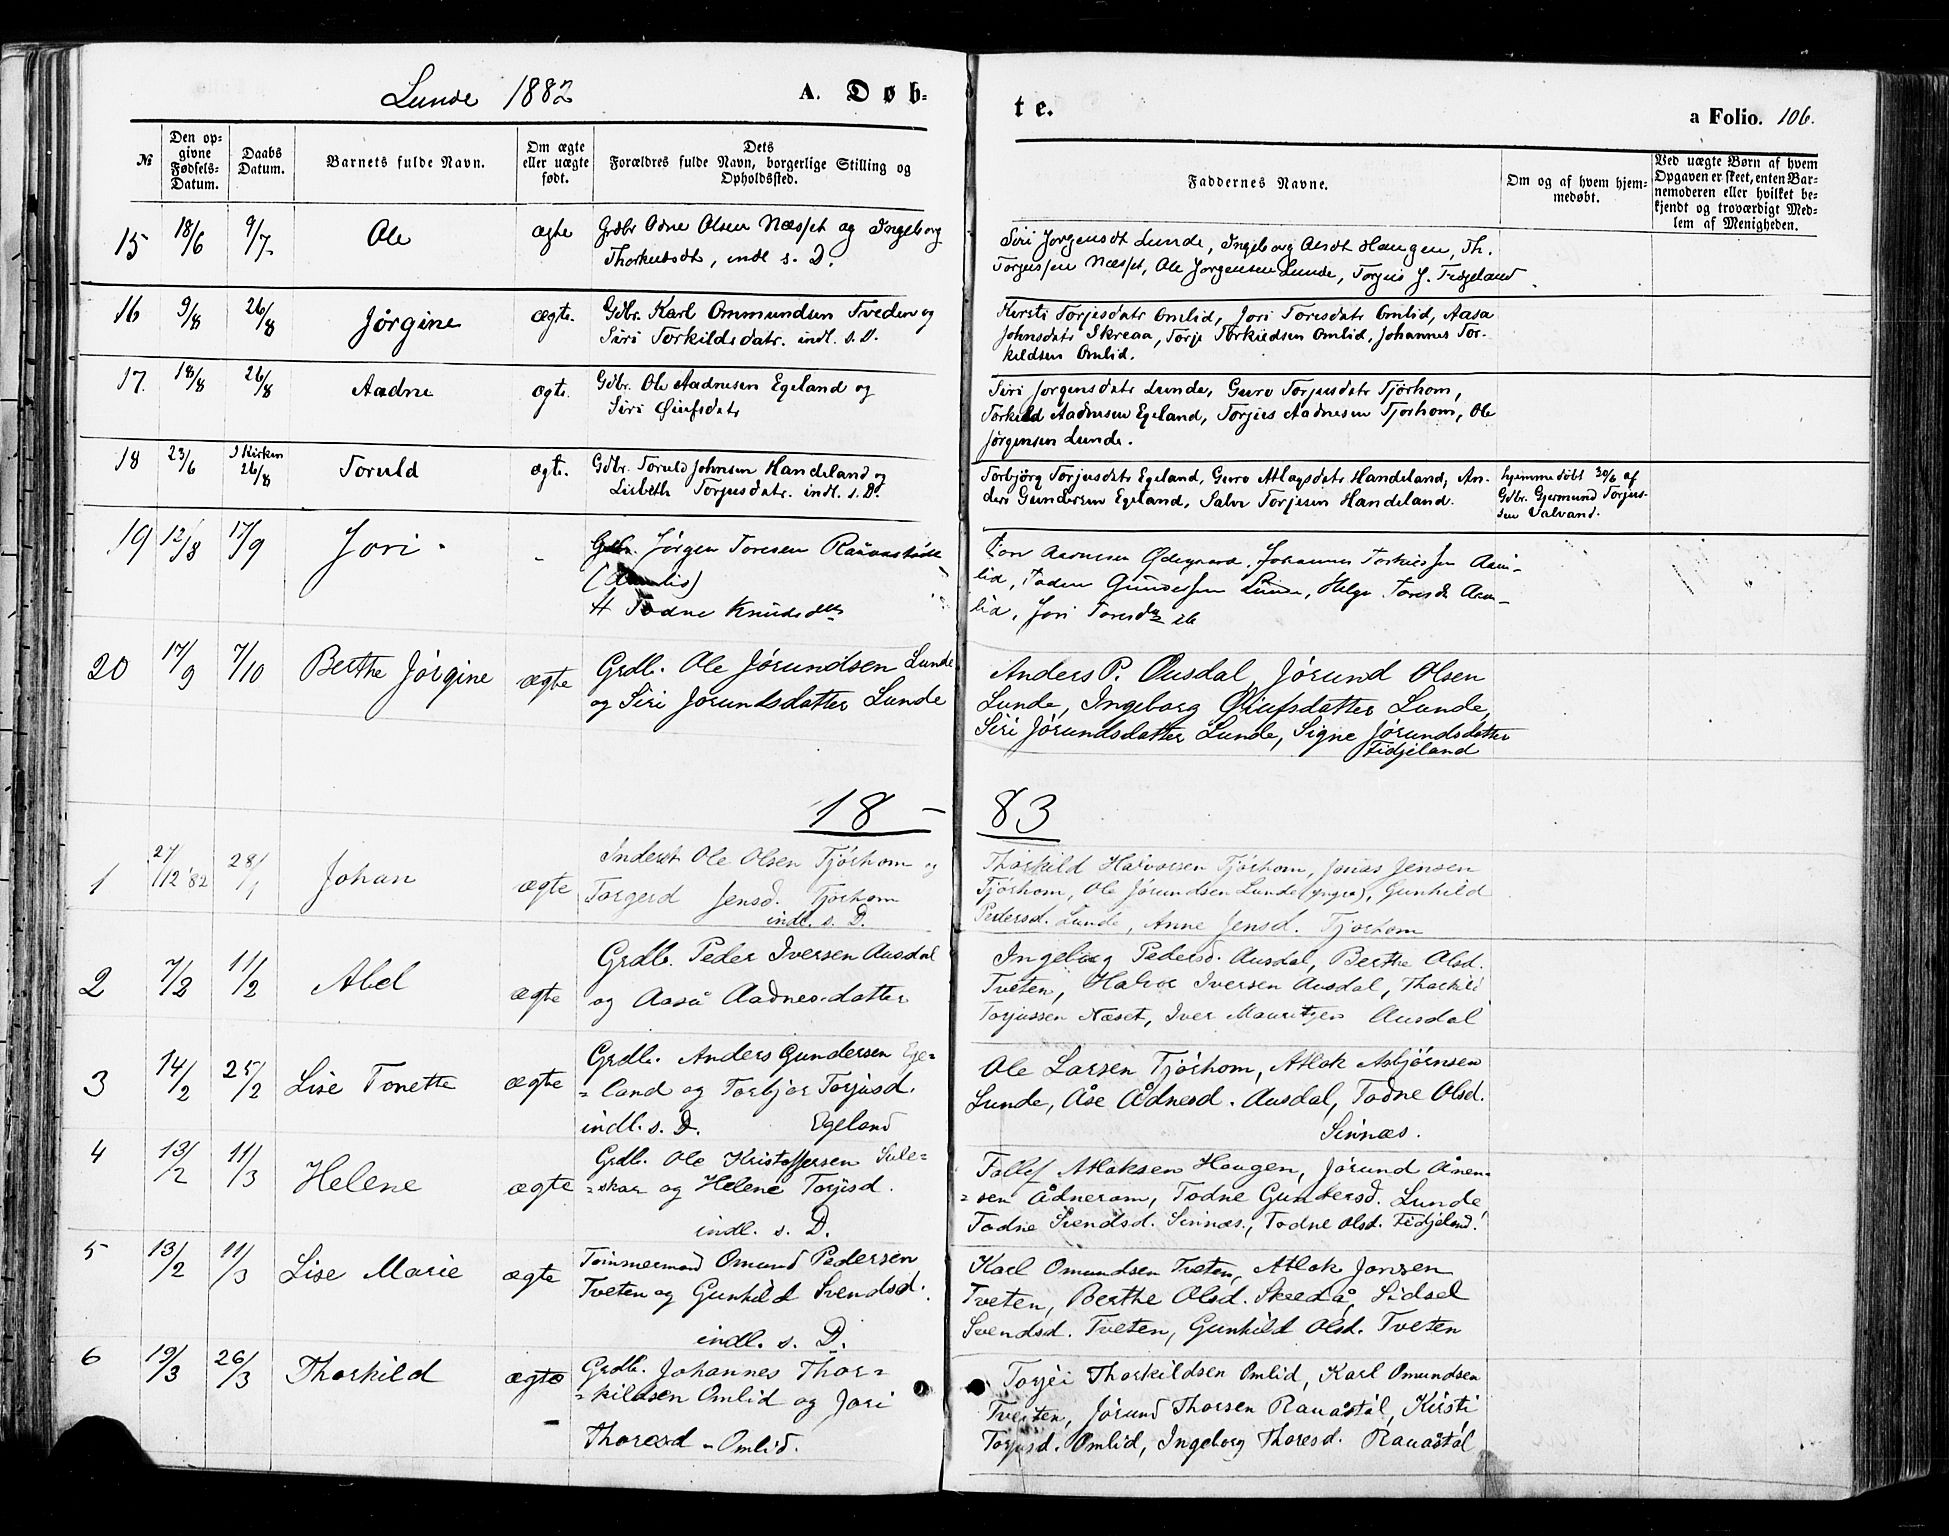 Lunde 1882
A. Døb-
te.
a Folio. 106.
№
Den op-
givne
Fødsels-
Datum.
Daabs
Datum.
Barnets fulde Navn.
Om ægte
eller uægte
født.
Dets
Forældres fulde Navn, borgerlige Stilling og
Opholdssted.
Faddernes Navne.
Om og af hvem hjem-
medøbt.
Ved uægte Børn af hvem
Opgaven er skeet, enten Bar-
nemoderen eller hvilket be-
kjendt og troværdigt Med-
lem af Menigheden.
15 18/6 9/7 Ole ægte
Grdbr Adne Olsen Næsset og Ingeborg
indl s. D.
Siri Jørgensdt Lunde, Ingeborg Haugen, Th.
Torjussen Næsset, Ole Jørgensen Lunde, Torjus J. Fidjeland
16 9/8 26/8 Jørgine ægte.
Gdbr. Karl Ommundsen Tveden og
Siri Torkildsdatr. indl. s. D.
Kirsti Torjesdatr Omlid, Jori Toresdatr Omlid, Aasa
Johnsdatr Skreaa, Torje Torkildsen Omlid, Johannes Tor-
kildsen Omlid.
17. 18/8 26/8 Aadne ægte.
Gdbr. Ole Aadnesen Egeland og
Siri Øiufsdatr
Siri Jørgensdatr Lunde, Guro Torjusdatr Tjørhom,
Torkild Aadnesen Egeland, Torjus Aadnesen Tjørhom, Ole
Jørgensen Lunde.
18 23/6 I Kirken
26/8 Toruld ægt.
Gdbr. Toruld Johnsen Handeland og
Lisbeth Torjusdatr. indl. s. D.
Torbjørg Torjusdatr Egeland, Guro Atlagsdatr Handeland, An-
ders Gundersen Egeland, Salve Torjesen Handeland.
hjemmedøbt 30/6 af
Gdbr. Gjermund Torjus-
sen Valvand.
19 12/8 17/9 Jori -
Gdbr. Jørgen Toresen
H Todne Knudsdtr
Ødegaard, Johannes Torkildsen Aam-
lid, Gundersen Lunde, Helge Toresd. Aam-
lid, Jori Toresdtr ib
20 17/9 7/10 Berthe Jørgine ægte
Grdb. Ole Jørundsen Lunde
og Siri Jørundsdatter Lunde
Anders P. Ousdal, Jørund Olsen
Lunde, Ingeborg Øiufsdatter Lunde,
Siri Jørundsdatter Lunde, Signe Jørundsdatter
Fidjeland
18 - 83
1 27/12 '82 28/1 Johan ægte
Inderst Ole Olsen Tjørhom og
Torgerd Jensd. Tjørhom
indl. s. D.
Thorkild Halvorsen Tjørhom, Jonas Jensen
Tjørhom, Ole Jørundsen Lunde (yngre), Gunhild
Pedersd. Lunde, Anne Jensd. Tjørhom
2 7/2 11/2 Abel ægte
Grdb. Peder Iversen Ausdal
og Aasa Aadnesdatter
Ingeborg Pedersd. Ausdal, Berthe Olsd.
Tveten, Halvor Iversen Ausdal, Thorkild
Torjussen Næset, Iver Mauritzen Ausdal
3 14/2 25/2 Lise Tonette ægte
Grdb. Anders Gundersen Ege=
=land og Torbjør Torjusd.
indl. s. D. Egeland
Ole Larsen Tjørhom, Atlak Asbjørnsen
Lunde, Åse Ådnesd. Ausdal, Todne Olsd.
Sinnæs.
4 13/2 11/3 Helene ægte
Grdb. Ole Kristoffersen Sule=
=skar og Helene Torjusd.
indl. s. D.
Follef Atlaksen Haugen, Jørund Ånen=
=sen Ådneram, Todne Gundersd. Lunde,
Todne Svendsd. Sinnæs, Todne Olsd. Fidjeland.
5 13/2 11/3 Lise Marie ægte
Tømmermand Omund Pedersen
Tveten og Gunhild Svendsd.
indl. s. D.
Karl Omundsen Tveten, Atlak Jonsen
Tveten, Berthe Olsd. Skredå, Sidsel
Svendsd. Tveten, Gunhild Olsd. Tveten
6 19/3 26/3 Thorkild ægte
Grdb. Johannes Thor=
=kildsen Omlid og Jori
Thoresd - Omlid.
Torjei Thorkildsen Omlid, Karl Omundsen
Tveten, Jørund Thorsen Rauåstøl, Kirsti
Torjusd. Omlid, Ingeborg Thoresd. Rauåstøl